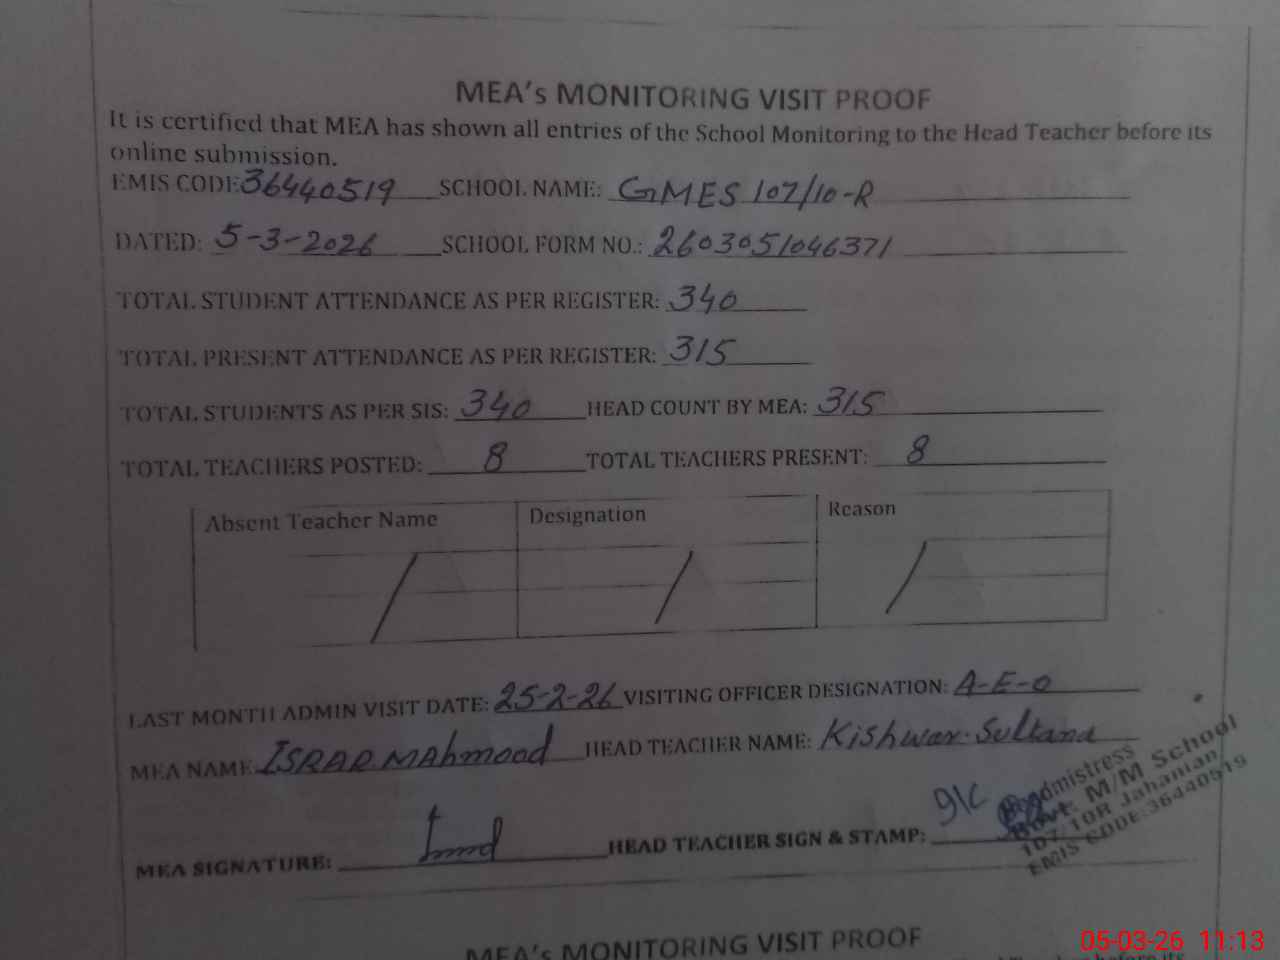 MEA's MONITORING VISIT PROOF
It is certified that MEA has shown all entries of the School Monitoring to the Head Teacher before its
online submission.
EMIS CODE 36440519 SCHOOL NAME: GMES 107/10-R
DATED: 5-3-2026 SCHOOL FORM NO.: 2603051046371
TOTAL STUDENT ATTENDANCE AS PER REGISTER: 340
TOTAL PRESENT ATTENDANCE AS PER REGISTER: 315
TOTAL STUDENTS AS PER SIS: 340 HEAD COUNT BY MEA: 315
TOTAL TEACHERS POSTED: 8 TOTAL TEACHERS PRESENT: 8
Absent Teacher Name Designation Reason
LAST MONTH ADMIN VISIT DATE: 25-2-26 VISITING OFFICER DESIGNATION: A-E-O
MEA NAME: ISRAR MAhmood HEAD TEACHER NAME: Kishwar Sultana
MEA SIGNATURE: HEAD TEACHER SIGN & STAMP:
Govt: M/M School
107/10R Jahanian
EMIS CODE:36440519
MEA's MONITORING VISIT PROOF
before its
05-03-26 11:13